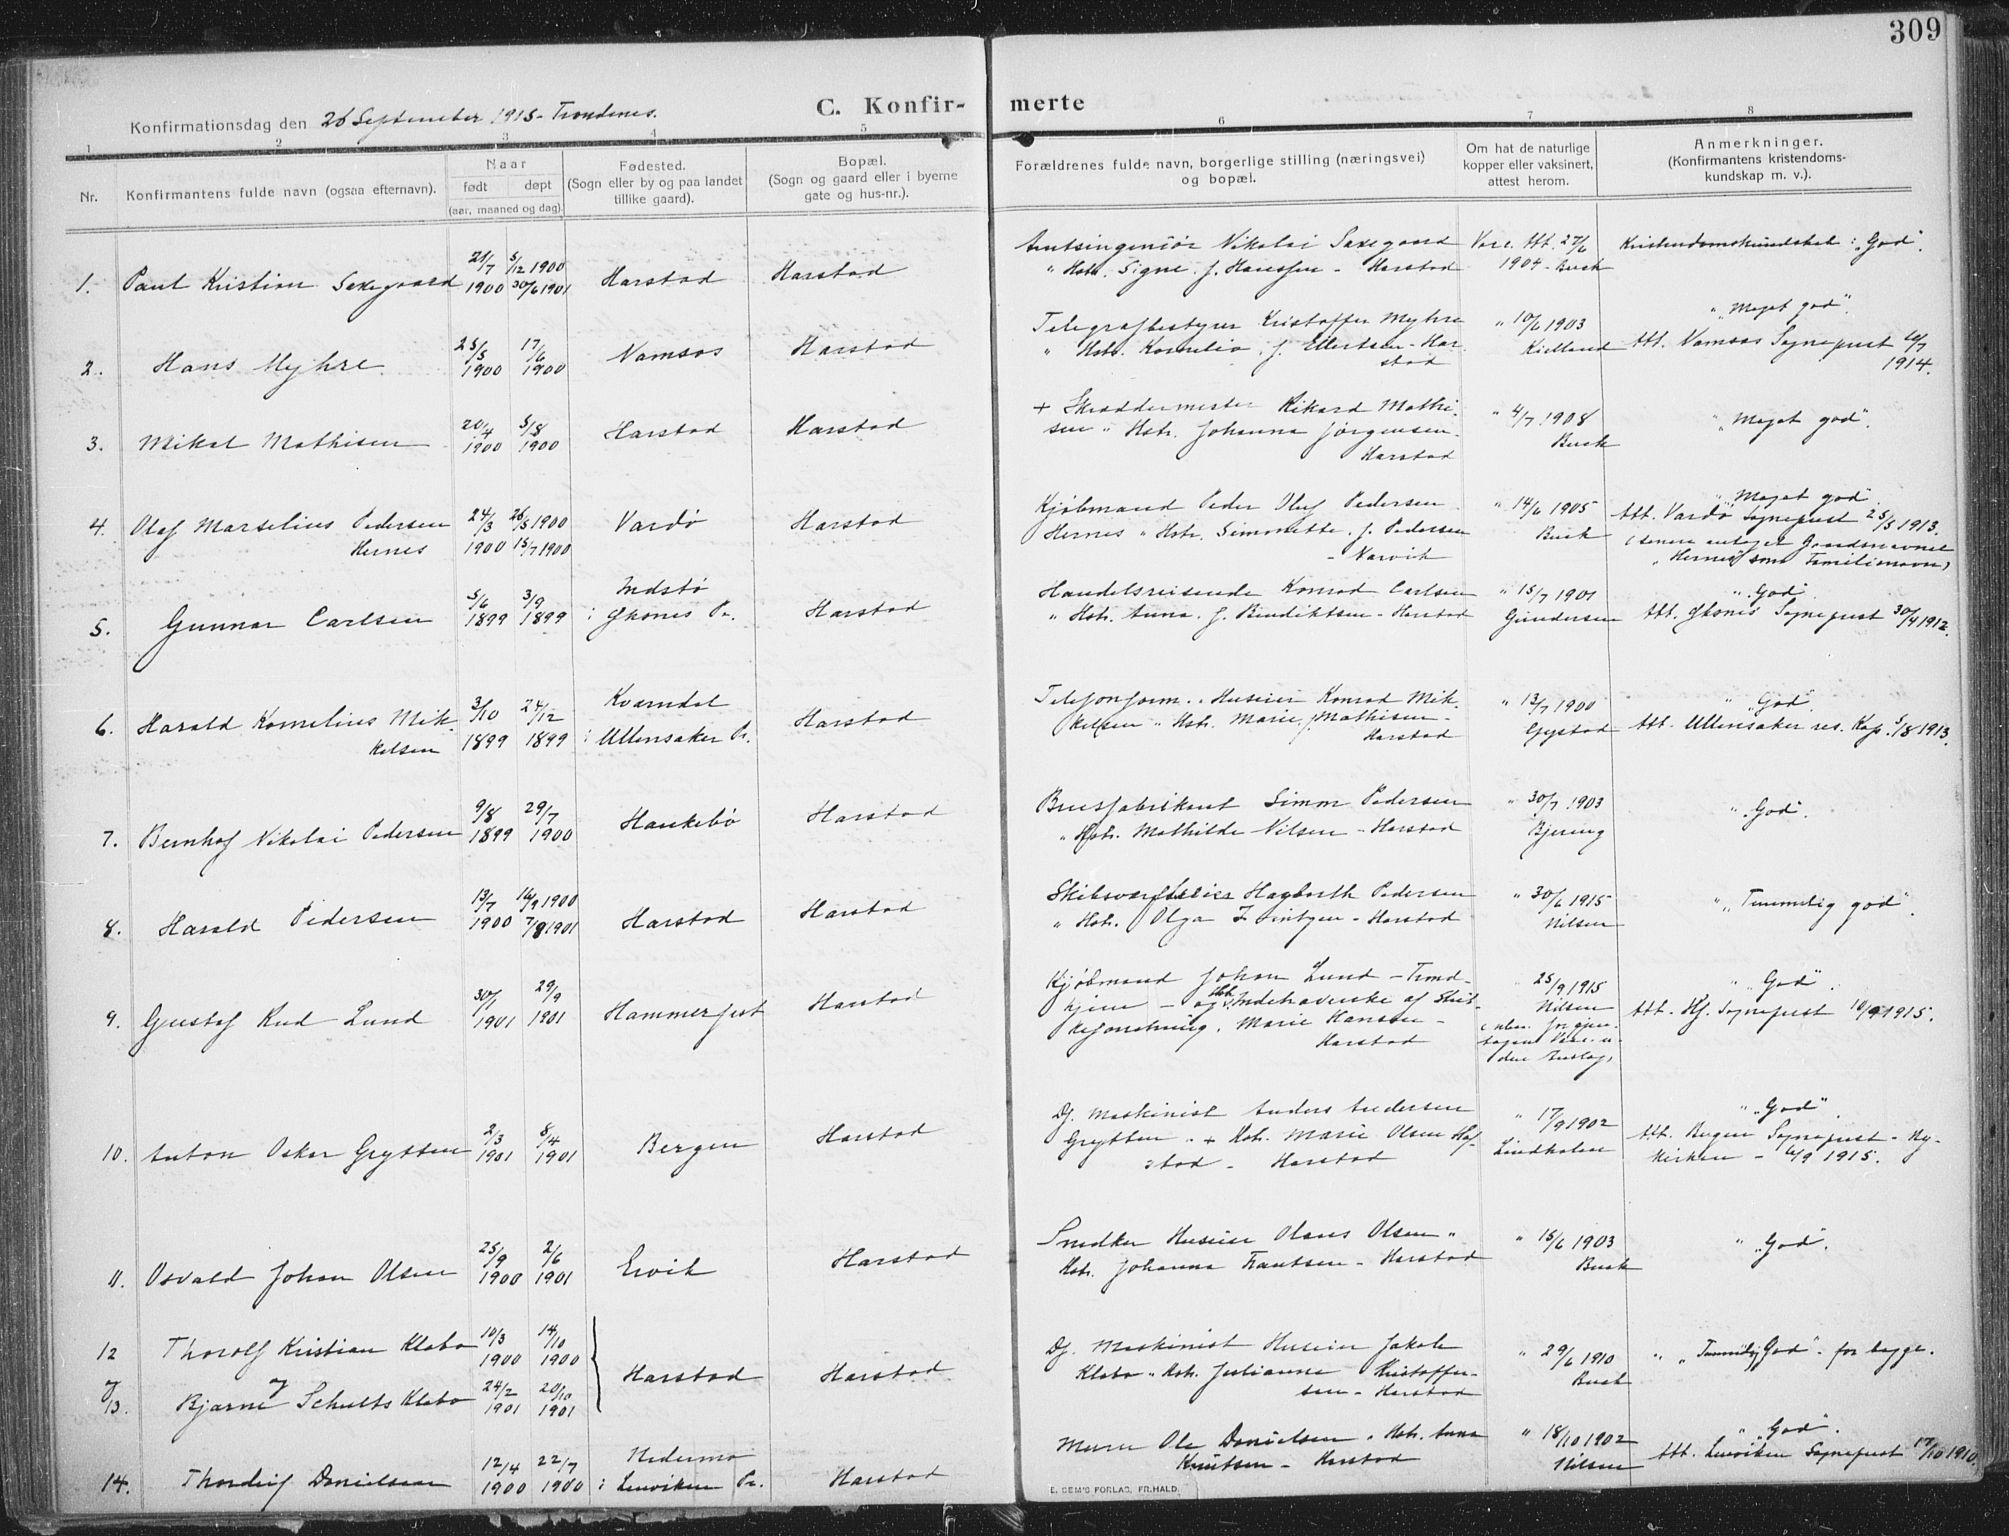 309
C. Konfirmerte
Konfirmationsdag den 26 September 1915 - Trondenes.
1 2 3 4 5 6 7 8
Nr.
Konfirmantens fulde navn (ogsaa efternavn).
Naar
født døpt
(aar, maaned og dag).
Fødested.
(Sogn eller by og paa landet
tillike gaard).
Bopæl.
(Sogn og gaard eller i byerne
gate og hus-nr.).
Forældrenes fulde navn, borgerlige stilling (næringsvei)
og bopæl.
Om hat de naturlige
kopper eller vaksinert,
attest herom.
Anmerkninger.
(Konfirmantens kristendoms-
kundskap m. v.).
1. Paul Kristian Saxegaard 21/7 1900 5/12 1900 30/6 1901 Harstad Harstad
Amtsingeniør Nikolai Saxegaard
" Hstr. Signe f. Hanssen - Harstad
Vacc. Att. 27/6
1904 - Buck
Kristendomskundskab: "God".
2. Hans Myhre 25/5 1900 17/6 1900 Namsos Harstad
Telegrafbestyrer Kristoffer Myhre
" Hstr. Kornelia f. Ellertsen - Har
stad
" 10/6 1903
Kielland
" "Meget god".
Att. Namsos Sogneprest
1914.
3. Mikal Mathisen 20/4 1900 5/8 1900 Harstad Harstad
+ Skræddermester Rikard Mathi-
sen " Hstr. Johanna Jørgensen -
Harstad
" 4/7 1908
Buck
" "Meget god".
4. Olaf Marselius Pedersen
Hernes 24/3 1900 26/5 1900 15/7 1900 Vardø Harstad
Kjøbmand Peder Oluf Pedersen
Hernes " Hstr. Simonette f. Pedersen
- Narvik
" 14/6 1905
Buck
" "Meget god".
Att. Vardø Sogneprest 25/5 1913.
(senere antaget Gaardsnavnet
"Hernes" som Familienavn)
5. Gunnar Carlsen 5/6 1899 3/9 1899 Indstø
i Ofkones Pr. Harstad
Handelsreisende Konrad Carlsen
" Hstr. Anna f. Bendiktsen - Harstad
" 15/7 1901
Gundersen
" "God".
Sogneprest 30/4 1912.
6. Harald Kornelius Mik-
kelsen 3/10 1899 24/12 1899 Kverndal
i Ullensaker Pr. Harstad
Telefonform. Huseier Konrad Mik-
kelsen " Hstr. Marie f. Mathisen -
Harstad
" 13/7 1900
Gystad
" "God".
Att. Ullensaker res. Kap. 5/8 1913.
7. Bernhof Nikolai Pedersen 9/8 1899 29/7 1900 Haukebø Harstad
Brusfabrikant Simon Pedersen
" Hstr. Mathilde Nilsen - Harstad
" 30/7 1903
Bjering
" "God".
8. Harald Pedersen 13/7 1900 16/9 1900 7/8 1901 Harstad Harstad
Skibsværfteier Hagbarth Pedersen
" Hstr. Olga - Harstad
" 30/6 1915
Nilsen
" "Temmelig god".
9. Gustaf Knud Lund 30/1 1901 29/9 1901 Hammerfest Harstad
Kjøbmand Johan Lund - Trond-
hjem - og Hstr. Indehaverske af
Marie Hansen -
Harstad
" 25/9 1915
Nilsen
" "God".
Att. Hf. Sogneprest 10/9 1915.
10. Anton Oskar Grytten 2/3 1901 8/4 1901 Bergen Harstad
Dj. Maskinist Anders Andersen
Grytten " + Hstr. Marie Olsen Hof-
stad - Harstad
" 17/9 1902
Lindholm
" "God".
Att. Bergen Sogneprest - Ny-
kirken - 6/9 1915.
11. Osvald Johan Olsen 25/9 1900 2/6 1901 Ervik Harstad
Snedker Huseier Olaus Olsen "
Hstr. Johanna Frantsen - Harstad
" 15/6 1903
Buck
" "God".
12 Thorolf Kristian Klæbo 10/3 1900 14/10 1900
og
13. Bjarne Schults Klæbo 24/2 1901 20/10 1901
Harstad Harstad
Dj. Maskinist Huseier Jakob
Klæbo " Hstr. Julianna Kristoffer-
sen - Harstad
" 29/6 1910
Buck
" "Temmelig God" - for begge.
14. Thorleif Danielsen 12/4 1900 22/7 1900 Nedermo
i Lenviken Pr. Harstad
Murer Ole Danielsen " Hstr. Anna
Knutsen - Harstad
" 18/10 1902
Nilsen
" "God".
Att. Lenviken Sogneprest 17/10 1910.
E. SEM'S FORLAG, FR.HALD.